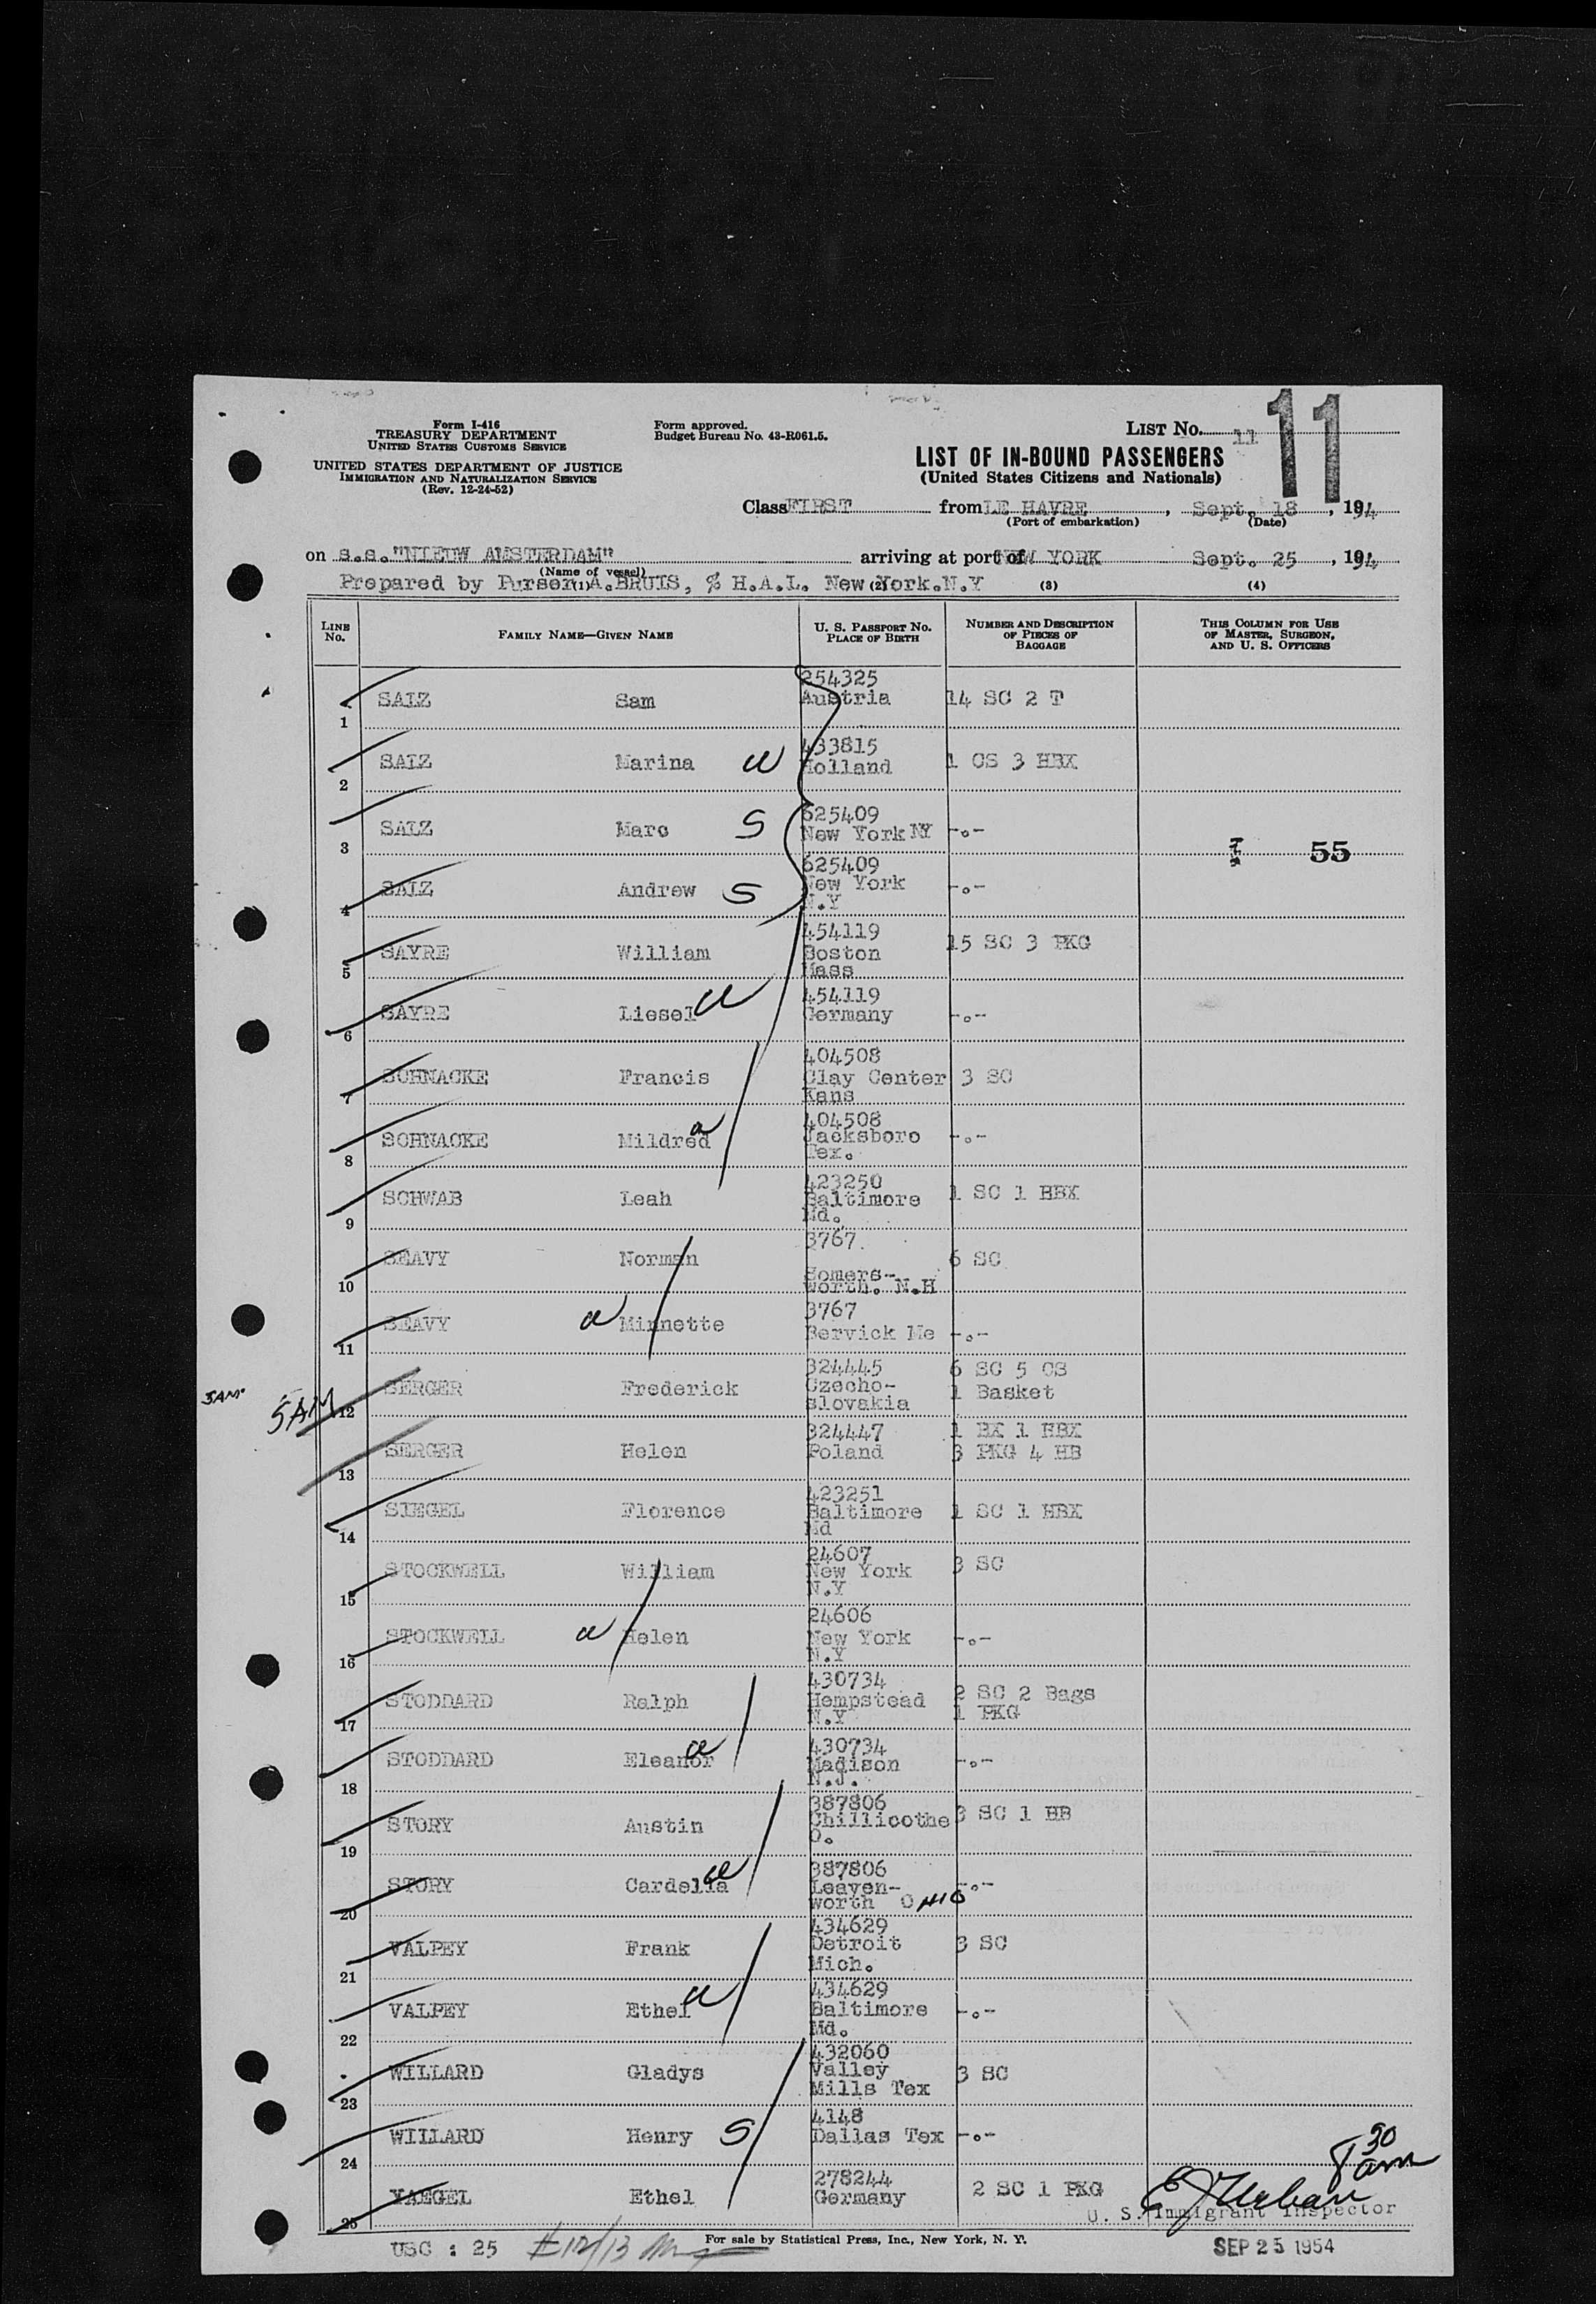 Form I-416
TREASURY DEPARTMENT
UNITED STATES CUSTOMS SERVICE
UNITED STATES DEPARTMENT OF JUSTICE
IMMIGRATION AND NATURALIZATION SERVICE
(Rev. 12-24-52)
Form approved.
Budget Bureau No. 43-R061.5.
LIST No. 11
11
LIST OF IN-BOUND PASSENGERS
(United States Citizens and Nationals)
Class FIRST from LE HAVRE, Sept. 18, 194
(Port of embarkation) (Date)
on s.s. "NIEUW AMSTERDAM" arriving at port of NEW YORK Sept. 25, 194
(Name of vessel)
Prepared by Purser A. BRUIS, % H.A.L. New York.N.Y
(1) (2) (3) (4)
LINE No. FAMILY NAME—GIVEN NAME U. S. PASSPORT No. PLACE OF BIRTH NUMBER AND DESCRIPTION OF PIECES OF BAGGAGE THIS COLUMN FOR USE OF MASTER, SURGEON, AND U. S. OFFICERS
254325
1 SALZ Sam Austria 14 SC 2 T
433815
2 SALZ Marina Holland 1 CS 3 HBX
625409
3 SALZ Marc S New York NY -.-
55
625409
4 SALZ Andrew S New York -.-
N.Y
454119
5 SAYRE William Boston 15 SC 3 PKG
Mass
454119
6 SAYRE Liesel Germany -.-
404508
7 SCHNACKE Francis Clay Center 3 SC
Kans
404508
8 SCHNACKE Mildred Jacksboro -.-
Tex.
423250
9 SCHWAB Leah Baltimore 1 SC 1 HBX
Md.
3767.
10 SEAVY Norman 6 SC
Somers-
worth. N.H
3767
11 SEAVY Minnette Bervick Me -.-
324445 6 SC 5 CS
5AM 5AM 12 SERGER Frederick Czecho- 1 Basket
slovakia
324447 1 BX 1 HBX
13 SERGER Helen Poland 3 PKG 4 HB
423251
14 SIEGEL Florence Baltimore 1 SC 1 HBX
Md
24607
15 STOCKWELL William New York 3 SC
N.Y
24606
16 STOCKWELL Helen New York -.-
N.Y
430734
17 STODDARD Ralph Hempstead 2 SC 2 Bags
N.Y 1 PKG
430734
18 STODDARD Eleanor Madison -.-
N.J.
387806
19 STORY Austin Chillicothe 3 SC 1 HB
O.
387806
20 STORY Cardella Leaven- -.-
worth OHIO
434629
21 VALPEY Frank Detroit 3 SC
Mich.
434629
22 VALPEY Ethel Baltimore -.-
Md.
432060
23 WILLARD Gladys Valley 3 SC
Mills Tex
4148
24 WILLARD Henry S Dallas Tex -.-
278244
25 YAEGEL Ethel Germany 2 SC 1 PKG
8 30 am
U. S. Immigrant Inspector
USC : 25 #12/13
For sale by Statistical Press, Inc., New York, N. Y.
SEP 25 1954